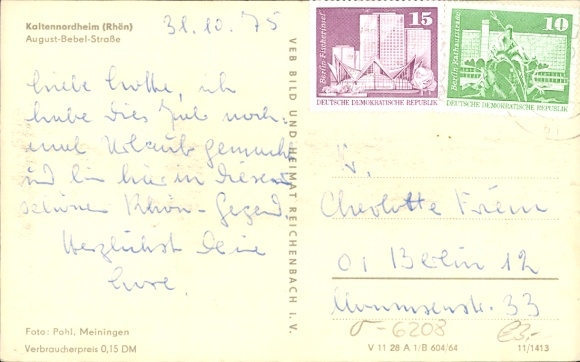 Kaltennordheim (Rhön)
August-Bebel-Straße
31.10.75
Liebe Lotte, ich
habe dies Jahr noch
mal Urlaub gemacht
und bin hier in dieser
schönen Rhön-Gegend
Herzlichst Deine
VEB BILD UND HEIMAT REICHENBACH I. V.
Berlin-Fischerinsel
15
DEUTSCHE DEMOKRATISCHE REPUBLIK
Berlin-Rathausstraße
10
DEUTSCHE DEMOKRATISCHE REPUBLIK
Charlotte
01 Berlin 12
33
σ-6208
€3,-
Foto: Pohl, Meiningen
Verbraucherpreis 0,15 DM
V 11 28 A 1/B 604/64
11/1413